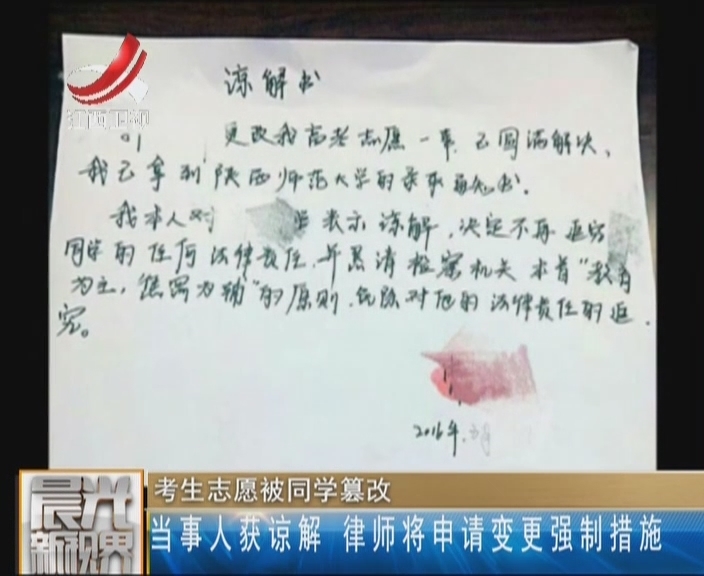 谅解书
江西卫视
更改我高考志愿一事,已圆满解决,
我已拿到陕西师范大学的录取通知书。
我本人对
表示谅解,决定不再追究
同学的任何法律责任,并恳请检察机关本着“教育
为主,惩罚为辅”的原则,免除对他的法律责任的追
究。
2016年
晨光新视界
考生志愿被同学篡改
当事人获谅解 律师将申请变更强制措施